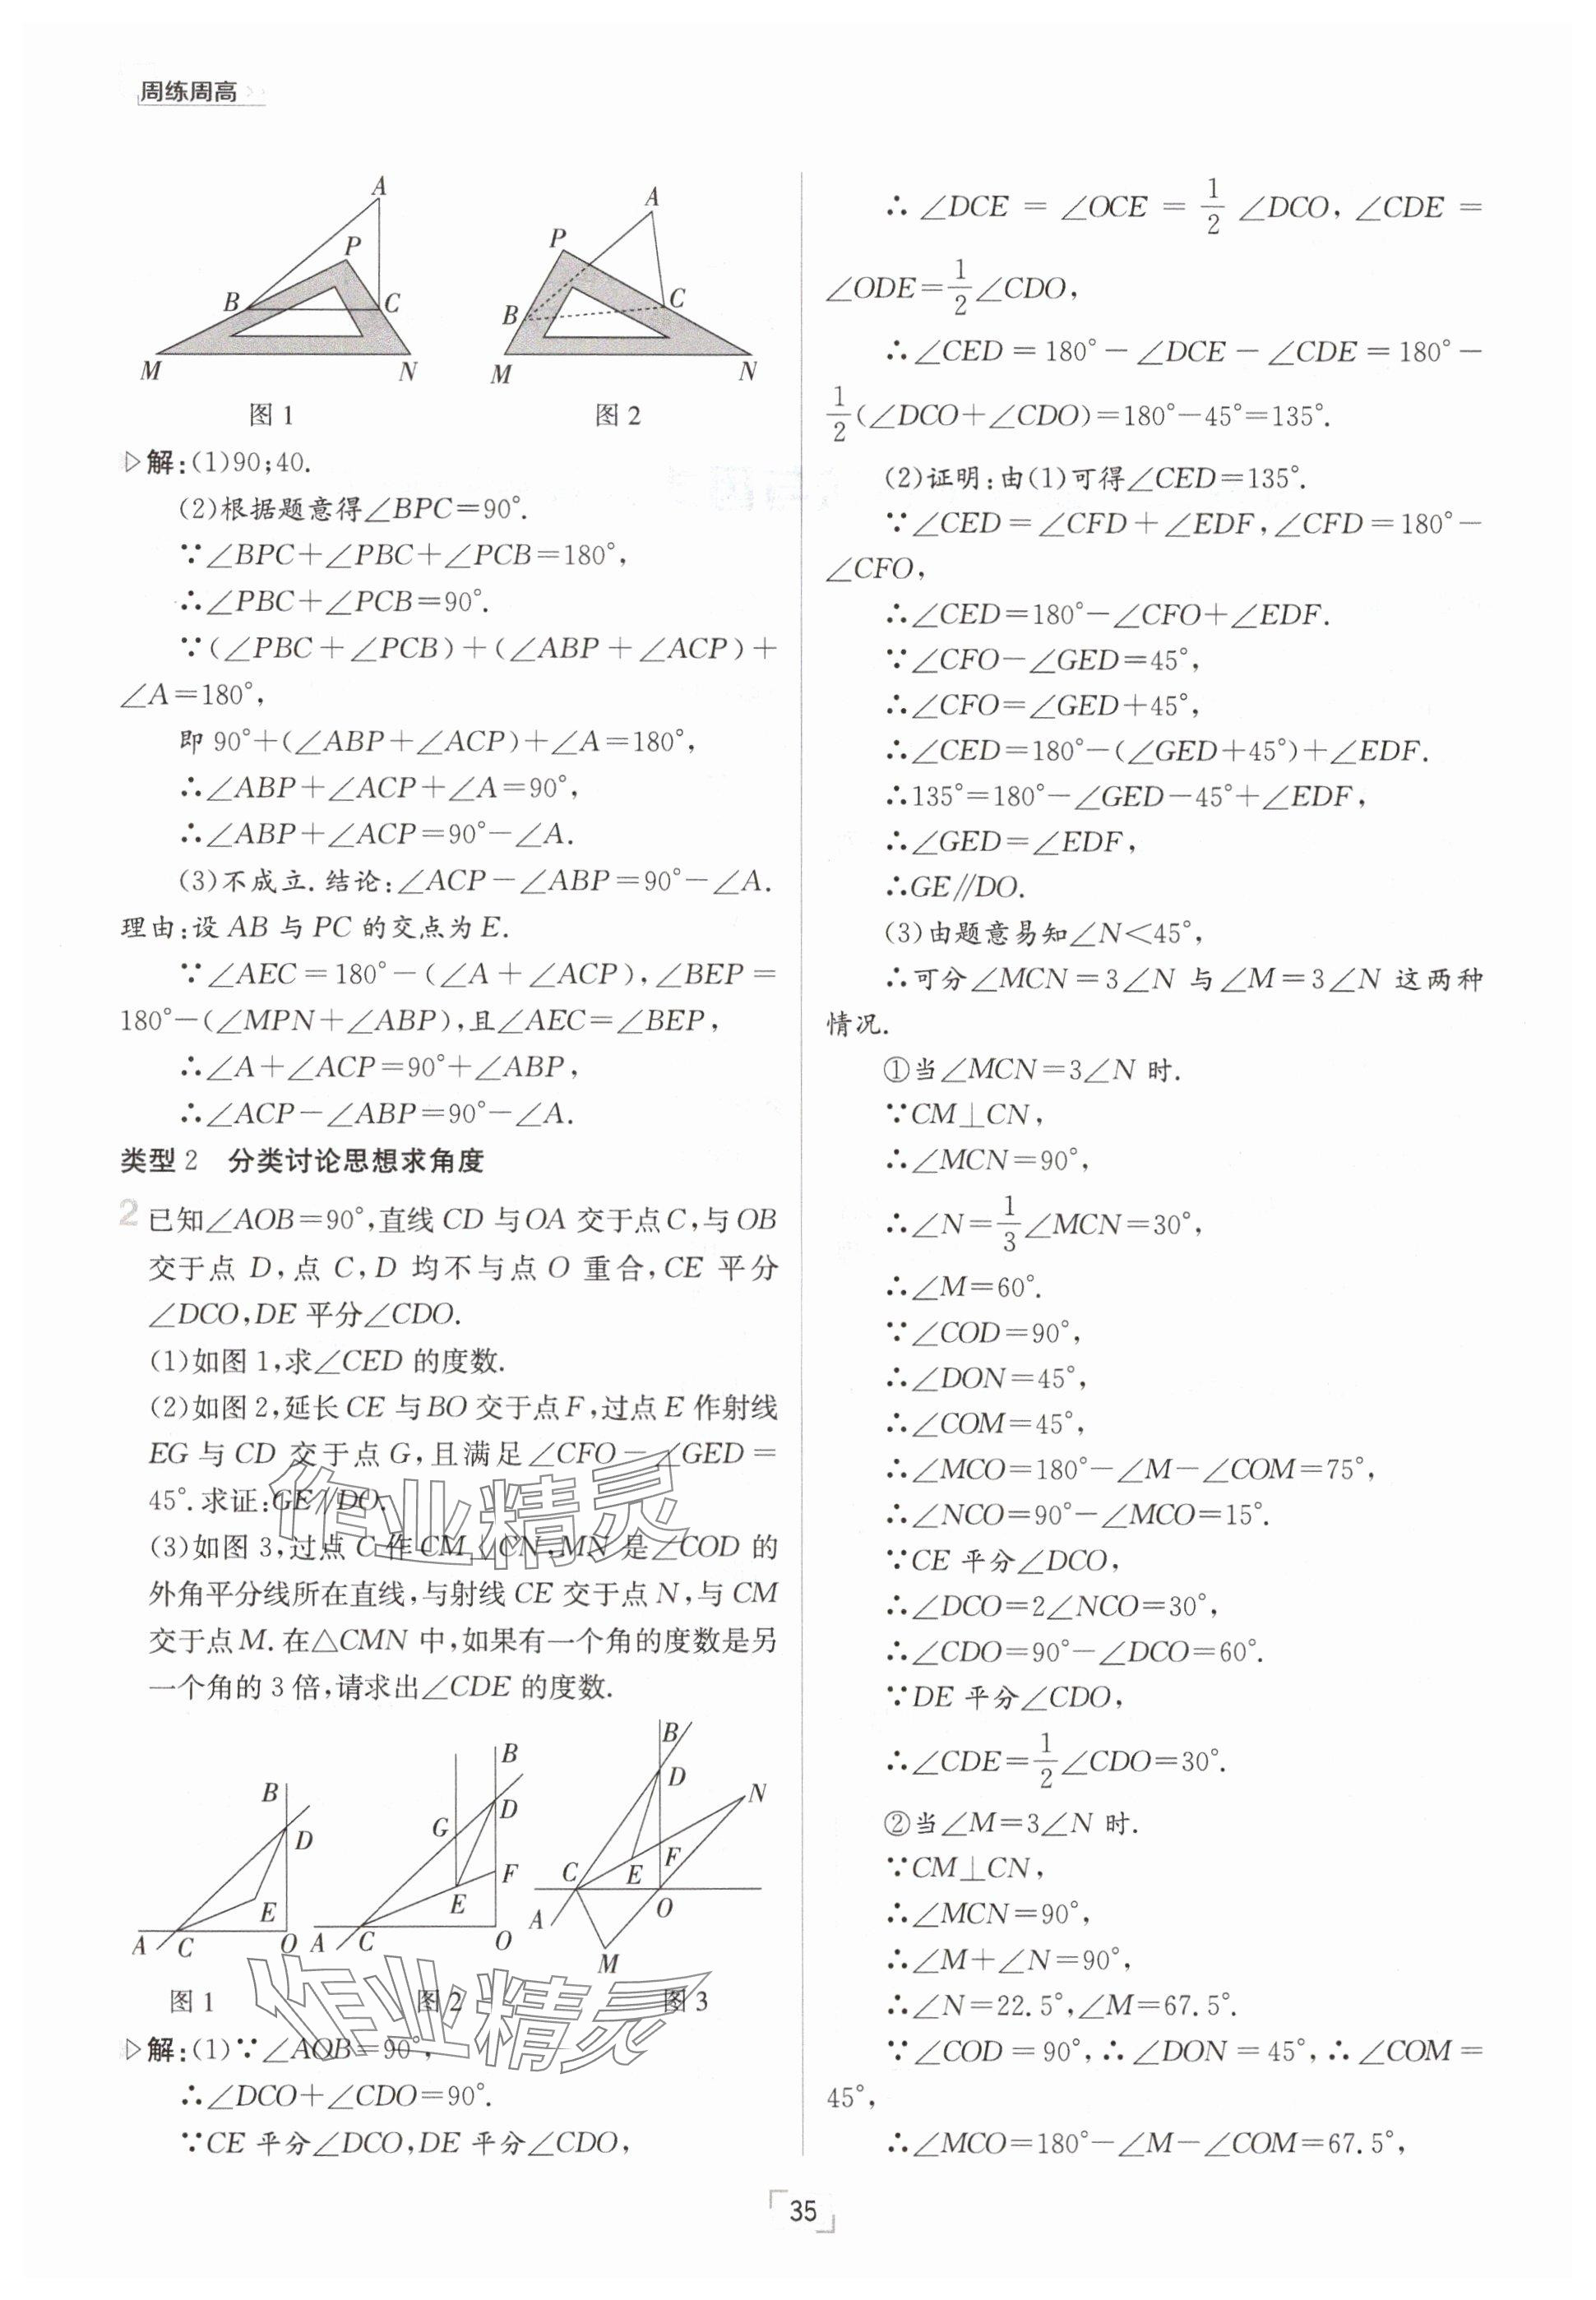 周练周高
A
P
B
C
M
N
图1
A
P
B
C
M
N
图2
▷解:(1)90;40.
(2)根据题意得∠BPC=90°.
∵∠BPC+∠PBC+∠PCB=180°,
∴∠PBC+∠PCB=90°.
∵(∠PBC+∠PCB)+(∠ABP+∠ACP)+
∠A=180°,
即 90°+(∠ABP+∠ACP)+∠A=180°,
∴∠ABP+∠ACP+∠A=90°,
∴∠ABP+∠ACP=90°-∠A.
(3)不成立.结论:∠ACP-∠ABP=90°-∠A.
理由:设 AB 与 PC 的交点为 E.
∵∠AEC=180°-(∠A+∠ACP),∠BEP=
180°-(∠MPN+∠ABP),且∠AEC=∠BEP,
∴∠A+∠ACP=90°+∠ABP,
∴∠ACP-∠ABP=90°-∠A.
类型2 分类讨论思想求角度
2 已知∠AOB=90°,直线 CD 与 OA 交于点 C,与 OB
交于点 D,点 C,D 均不与点 O 重合,CE 平分
∠DCO,DE 平分∠CDO.
(1)如图1,求∠CED 的度数.
(2)如图2,延长 CE 与 BO 交于点 F,过点 E 作射线
EG 与 CD 交于点 G,且满足∠CFO-∠GED=
45°.求证:GE∥DO.
(3)如图3,过点 C 作 CM⊥CN,MN 是∠COD 的
外角平分线所在直线,与射线 CE 交于点 N,与 CM
交于点 M.在△CMN 中,如果有一个角的度数是另
一个角的3倍,请求出∠CDE 的度数.
B
D
E
A
C
O
图1
B
D
G
F
E
A
C
O
图2
B
D
N
C
E
F
A
O
M
图3
作业精灵
作业精灵
▷解:(1)∵∠AOB=90°,
∴∠DCO+∠CDO=90°.
∵CE 平分∠DCO,DE 平分∠CDO,
∴∠DCE=∠OCE=1/2∠DCO,∠CDE=
∠ODE=1/2∠CDO,
∴∠CED=180°-∠DCE-∠CDE=180°-
1/2(∠DCO+∠CDO)=180°-45°=135°.
(2)证明:由(1)可得∠CED=135°.
∵∠CED=∠CFD+∠EDF,∠CFD=180°-
∠CFO,
∴∠CED=180°-∠CFO+∠EDF.
∵∠CFO-∠GED=45°,
∴∠CFO=∠GED+45°,
∴∠CED=180°-(∠GED+45°)+∠EDF.
∴135°=180°-∠GED-45°+∠EDF,
∴∠GED=∠EDF,
∴GE∥DO.
(3)由题意易知∠N<45°,
∴可分∠MCN=3∠N 与∠M=3∠N 这两种
情况.
①当∠MCN=3∠N 时.
∵CM⊥CN,
∴∠MCN=90°,
∴∠N=1/3∠MCN=30°,
∴∠M=60°.
∵∠COD=90°,
∴∠DON=45°,
∴∠COM=45°,
∴∠MCO=180°-∠M-∠COM=75°,
∴∠NCO=90°-∠MCO=15°.
∵CE 平分∠DCO,
∴∠DCO=2∠NCO=30°,
∴∠CDO=90°-∠DCO=60°.
∵DE 平分∠CDO,
∴∠CDE=1/2∠CDO=30°.
②当∠M=3∠N 时.
∵CM⊥CN,
∴∠MCN=90°,
∴∠M+∠N=90°,
∴∠N=22.5°,∠M=67.5°.
∵∠COD=90°,∴∠DON=45°,∴∠COM=
45°,
∴∠MCO=180°-∠M-∠COM=67.5°,
35